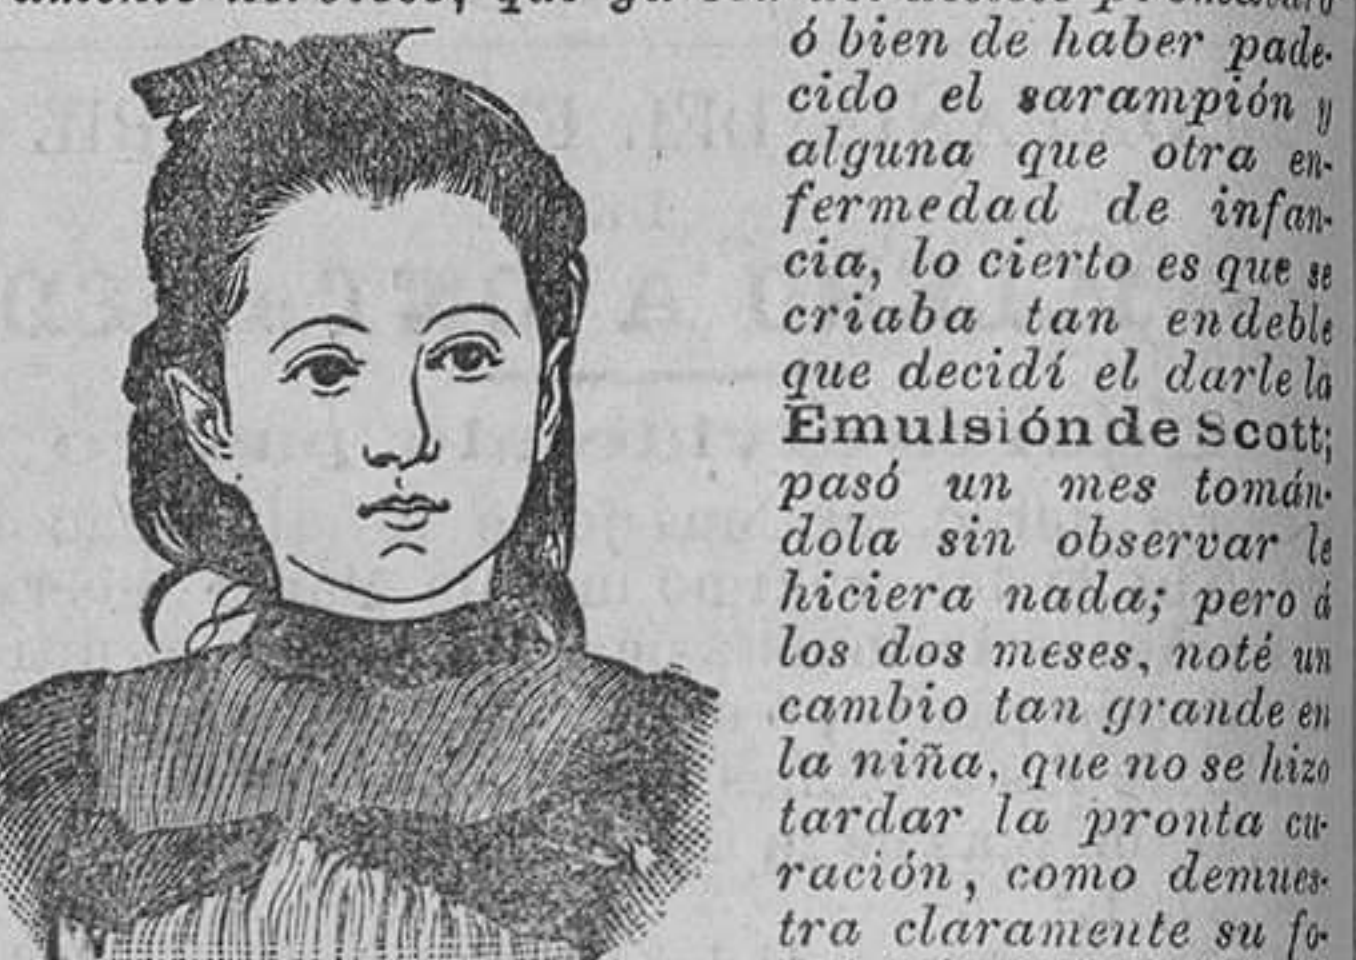 ó bien de haber pade-
cido el sarampión y
alguna que otra en-
fermedad de infan-
cia, lo cierto es que se
criaba tan endeble
que decidí el darle la
Emulsión de Scott;
pasó un mes tomán-
dola sin observar le
hiciera nada; pero á
los dos meses, noté un
cambio tan grande en
la niña, que no se hizo
tardar la pronta cu-
ración, como demues-
tra claramente su fo-